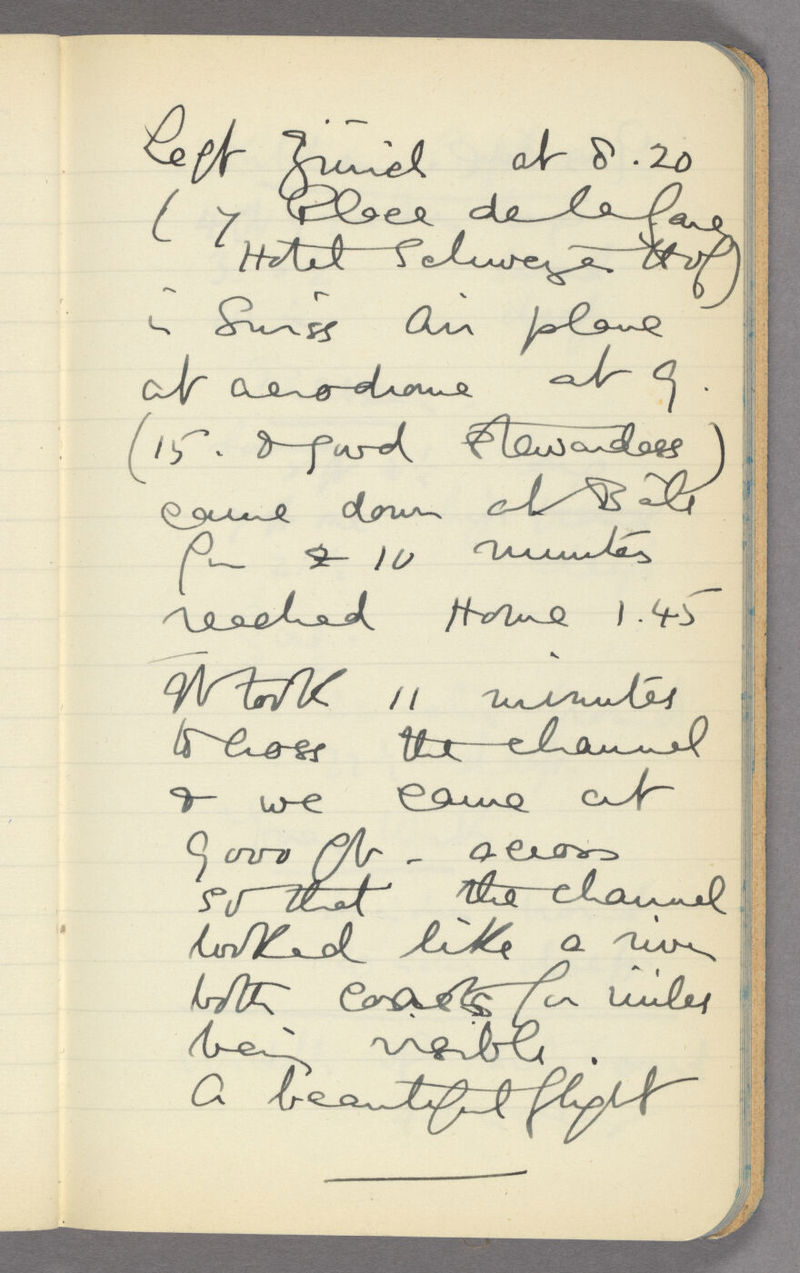 Left Zürich at 8.20
( 7 Place de la Gare
Hotel Schweizer Hof)
in Swiss Air plane
at aerodrome at 9.
(15. & good stewardess)
came down at Bâle
for 10 minutes
reached Home 1.45
It took 11 minutes
to cross the channel
& we came at
9000 ft - across
so that the channel
looked like a river
both coasts for miles
being visible.
A beautiful flight